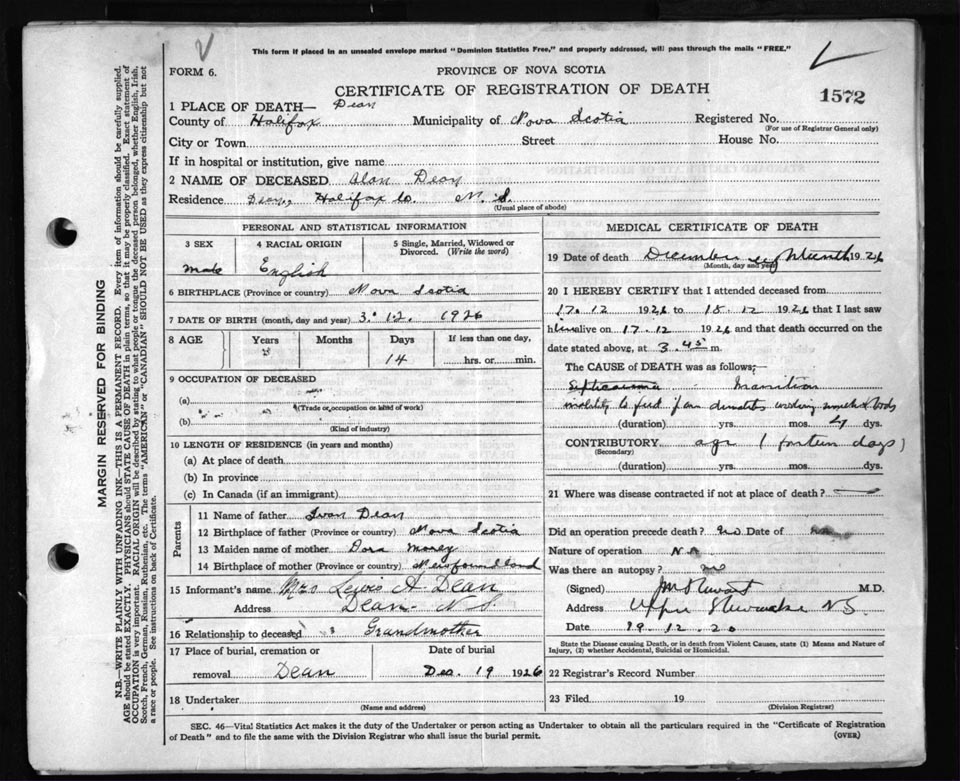 This form if placed in an unsealed envelope marked "Dominion Statistics Free," and properly addressed, will pass through the mails "FREE."
FORM 6.
PROVINCE OF NOVA SCOTIA
CERTIFICATE OF REGISTRATION OF DEATH
1572
1 PLACE OF DEATH— Dean
County of Halifax Municipality of Nova Scotia Registered No.
(For use of Registrar General only)
City or Town Street House No.
If in hospital or institution, give name
2 NAME OF DECEASED Alan Dean
Residence Dean, Halifax Co. N.S.
(Usual place of abode)
PERSONAL AND STATISTICAL INFORMATION
3 SEX 4 RACIAL ORIGIN 5 Single, Married, Widowed or Divorced. (Write the word)
male English
6 BIRTHPLACE (Province or country) Nova Scotia
7 DATE OF BIRTH (month, day and year) 3. 12. 1926
8 AGE Years Months Days If less than one day,
14 hrs. or min.
9 OCCUPATION OF DECEASED
(a)
(Trade or occupation or kind of work)
(b)
(Kind of industry)
10 LENGTH OF RESIDENCE (in years and months)
(a) At place of death
(b) In province
(c) In Canada (if an immigrant)
Parents
11 Name of father Ivan Dean
12 Birthplace of father (Province or country) Nova Scotia
13 Maiden name of mother Dora
14 Birthplace of mother (Province or country) Newfoundland
15 Informant's name Mrs Lewis A Dean
Address Dean N.S.
16 Relationship to deceased Grandmother
17 Place of burial, cremation or Date of burial
removal Dean Dec. 19 1926
18 Undertaker
(Name and address)
MEDICAL CERTIFICATE OF DEATH
19 Date of death December 1926
(Month, day and year)
20 I HEREBY CERTIFY that I attended deceased from
17. 12 1926 to 18. 12 1926 that I last saw
him alive on 17. 12 1926 and that death occurred on the
date stated above, at 3.45 m.
The CAUSE OF DEATH was as follows:—
Inanition
inability to feed from
(duration) yrs. mos. dys.
CONTRIBUTORY age (fourteen days)
(Secondary)
(duration) yrs. mos. dys.
21 Where was disease contracted if not at place of death?
Did an operation precede death? no Date of
Nature of operation N A
Was there an autopsy? no
(Signed) M.D.
Address Upper Stewiacke N.S.
Date 19. 12. 26
State the Disease causing Death, or in death from Violent Causes, state (1) Means and Nature of Injury, (2) whether Accidental, Suicidal or Homicidal.
22 Registrar's Record Number
23 Filed 19
(Division Registrar)
SEC. 46—Vital Statistics Act makes it the duty of the Undertaker or person acting as Undertaker to obtain all the particulars required in the "Certificate of Registration
of Death" and to file the same with the Division Registrar who shall issue the burial permit. (OVER)
MARGIN RESERVED FOR BINDING
N.B.—WRITE PLAINLY WITH UNFADING INK—THIS IS A PERMANENT RECORD. Every item of information should be carefully supplied.
AGE should be stated EXACTLY. PHYSICIANS should STATE CAUSE OF DEATH in plain terms, so that it may be properly classified. Exact statement of
OCCUPATION is very important. RACIAL ORIGIN will be described by stating to what people or tongue the deceased person belonged, whether English, Irish,
Scotch, French, German, Russian, Ruthenian, etc. The terms "AMERICAN" or "CANADIAN" SHOULD NOT BE USED as they express citizenship but not
a race or people. See instructions on back of Certificate.